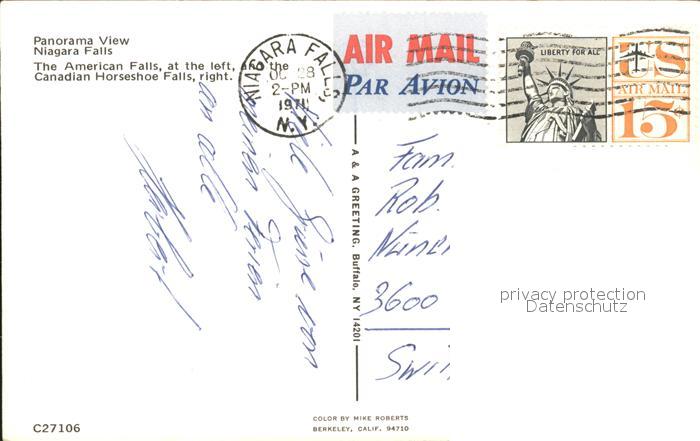 Panorama View
Niagara Falls
The American Falls, at the left, and the
Canadian Horseshoe Falls, right.
NIAGARA FALLS
2-PM
1971
N.Y.
AIR MAIL
PAR AVION
LIBERTY FOR ALL
US
AIR MAIL
15¢
von
an alle
A & A GREETING, Buffalo, NY 14201
Fam.
Rob.
3600
privacy protection
Datenschutz
C27106
COLOR BY MIKE ROBERTS
BERKELEY, CALIF. 94710